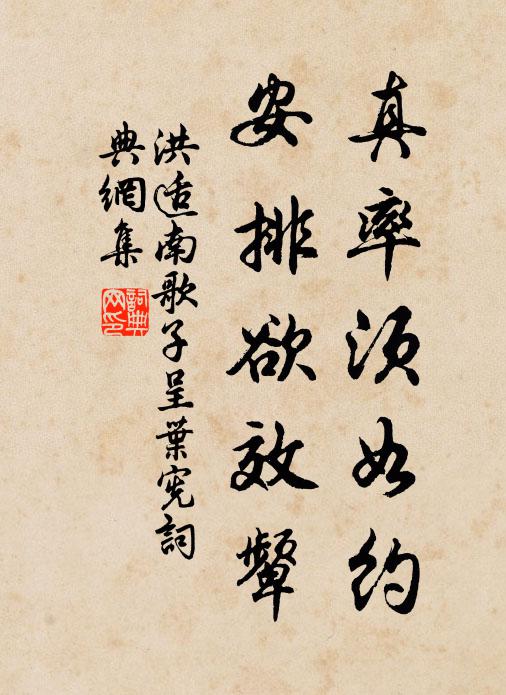 真率須如約
安排欲效顰
洪适南歌子呈葉憲詞
典網集
詞典网印